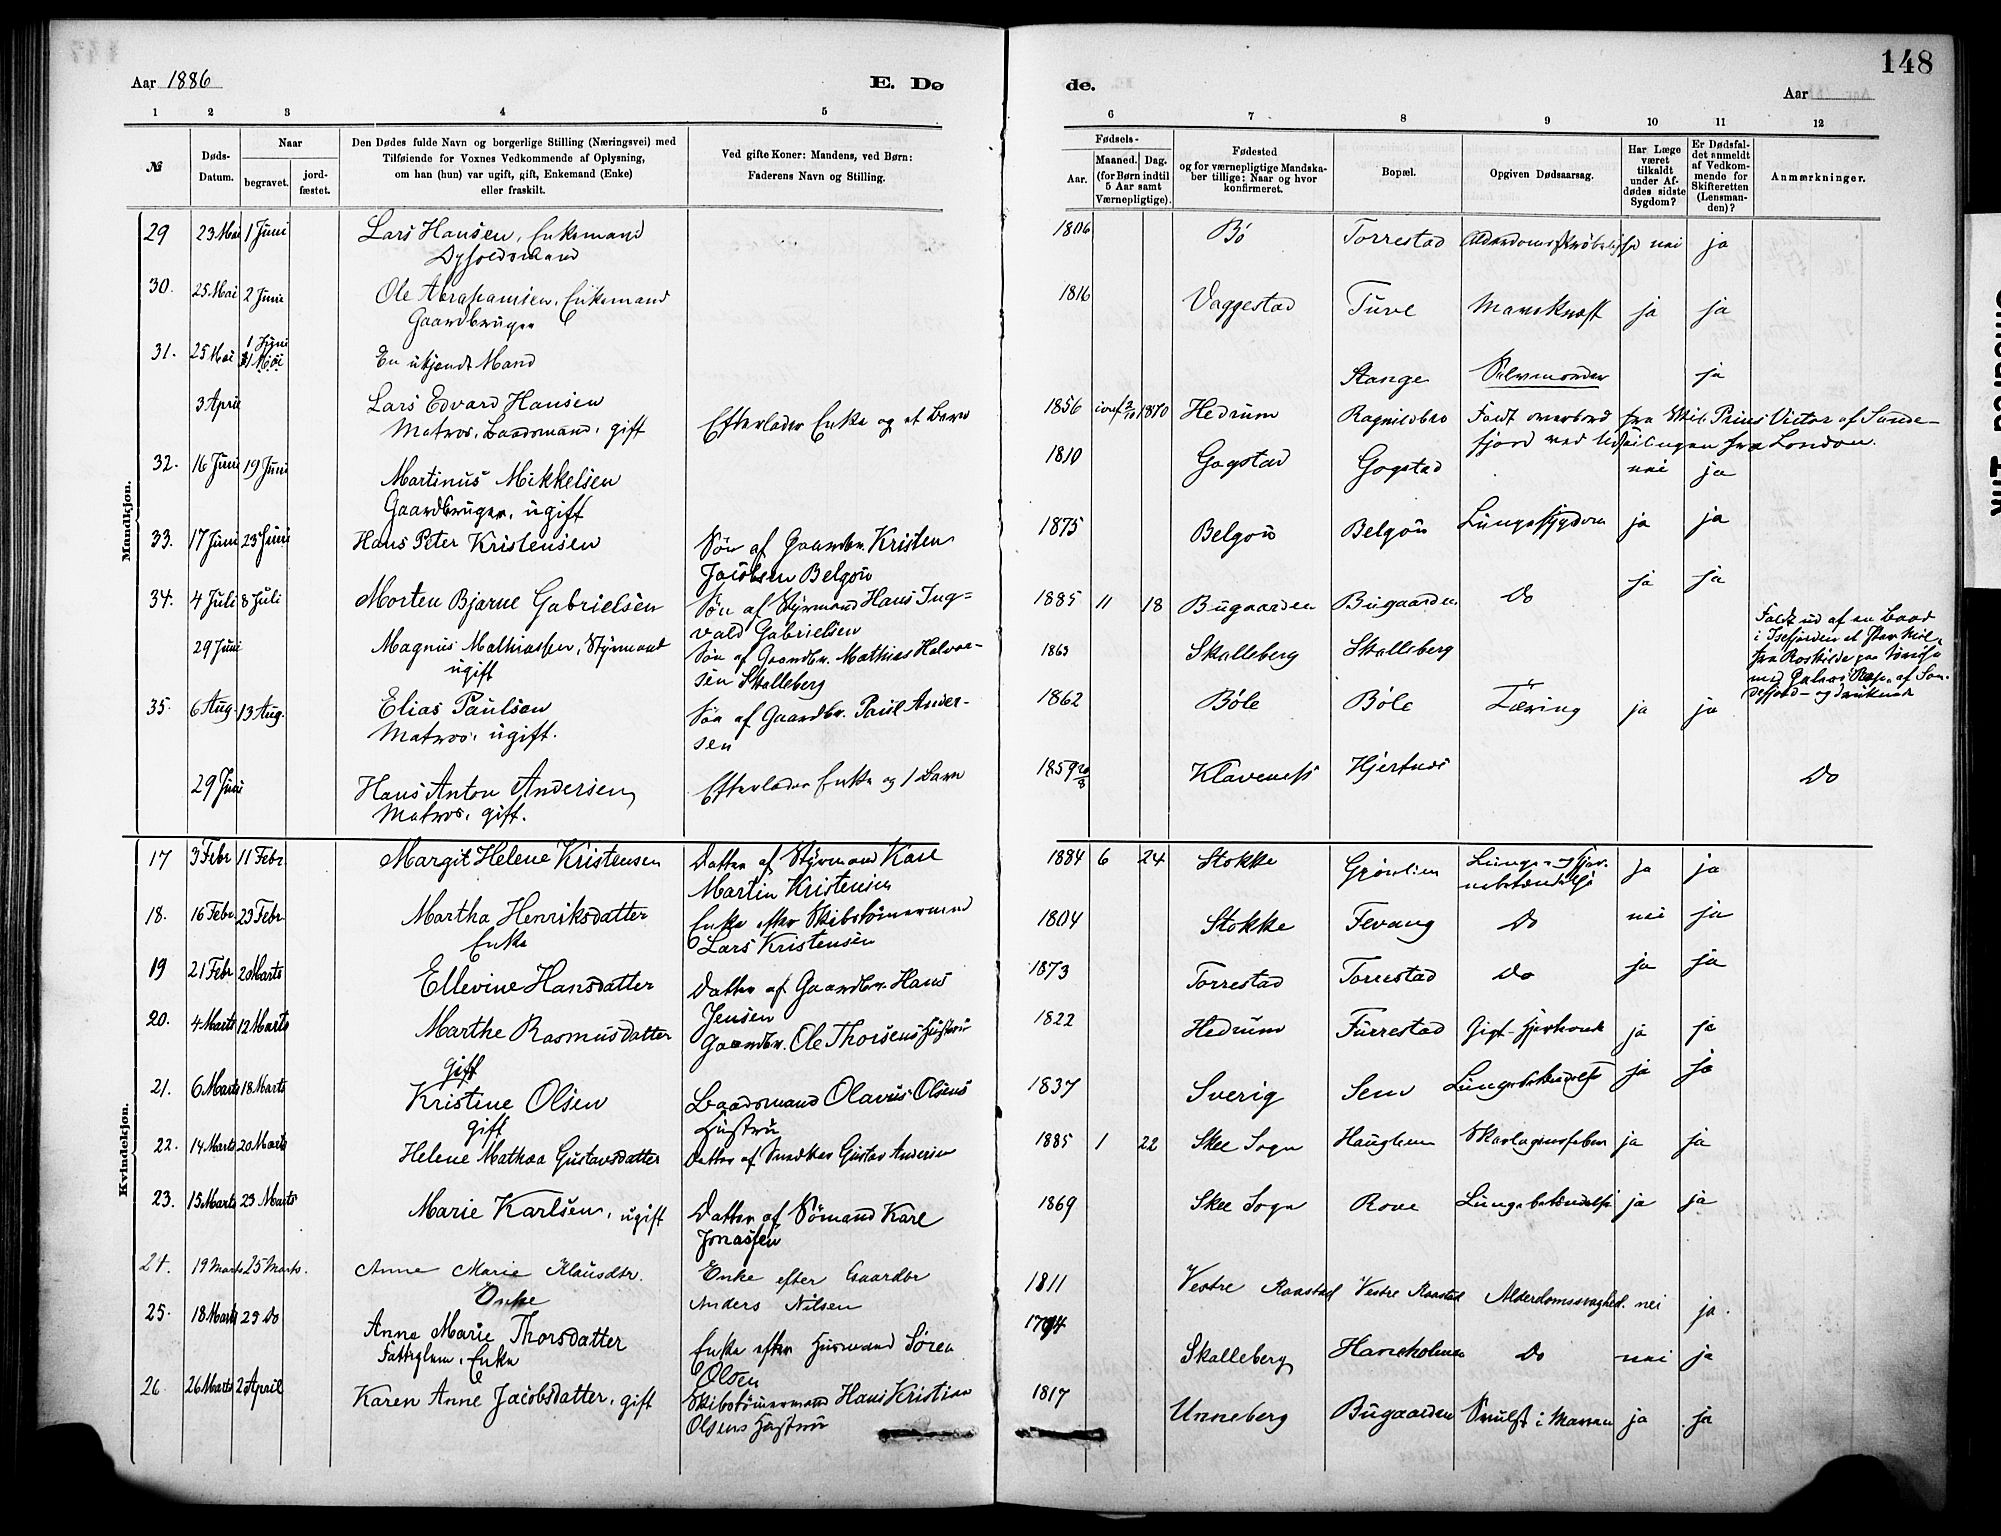 148
Aar 1886
E. Dø
de.
Aar
1 2 3 4 5
6 7 8 9 10 11 12
№
Døds-
Datum.
Naar
begravet.
jord-
fæstet.
Den Dødes fulde Navn og borgerlige Stilling (Næringsvei) med
Tilføiende for Voxnes Vedkommende af Oplysning,
om han (hun) var ugift, gift, Enkemand (Enke)
eller fraskilt.
Ved gifte Koner: Mandens, ved Børn:
Faderens Navn og Stilling.
Fødsels-
Aar.
Maaned. Dag.
(for Børn indtil
5 Aar samt
Værnepligtige).
Fødested
og for værnepligtige Mandska-
ber tillige: Naar og hvor
konfirmeret.
Bopæl.
Opgiven Dødsaarsag.
Har Læge
været
tilkaldt
under Af-
dødes sidste
Sygdom?
Er Dødsfal-
det anmeldt
af Vedkom-
mende for
Skifteretten
(Lensman-
den)?
Anmærkninger.
Mandkjøn.
29 23 Mai 1 Juni Lars Hansen, Enkemand 1806 Bö Torrestad nei ja
30. 25 Mai 2 Juni Ole Abrahamsen, Enkemand 1816 Vaggestad Tuve ja ja
Gaardbruger
31. 25 Mai 1 Juni
31 Mai
En ukjendt Mand Stange Selvmorder ja
3 April Lars Edvard Hansen Efterlader Enke og et Barn 1856 1870 Hedrum Faldt overbord fra Prins Victor af Sande-
Matros, Baadsmand, gift fjord ved fra London.
32. 16 Juni 19 Juni Martinus Mikkelsen 1810 Gogstad Gogstad nei ja
Gaardbruger, ugift
33. 17 Juni 23 Juni Hans Peter Kristensen Sön af Gaardbr. Kristen 1875 Belgöu Belgöu Lungesygdom ja ja
Jacobsen Belgöu
34. 4 Juli 8 Juli Morten Bjarne Gabrielsen Sön af Styrmand Hans Ing- 1885 11 18 Bugaarden Bugaarden Do ja ja
vald Gabrielsen
29 Juni Magnus Mathiassen, Styrmand Sön af Gaardbr. Mathias Halvor- 1863 Skalleberg Skalleberg Faldt ud af en Baad
ugift sen Skalleberg i Isefjorden
fra Roskilde
35. 6 Aug. 13 Aug. Elias Paulsen Sön af Gaardbr. Paul Ander- 1862 Böle Böle Tæring ja ja af San-
Matros, ugift. sen defjord - og druknede
29 Juni Hans Anton Andersen, Efterlader Enke og 1 Barn 1859 20/8 Klaveness Hjertnes Do
Matros, gift.
Kvindekjøn.
17 3 Febr 11 Febr Margit Helene Kristensen Datter af Styrmand Karl 1884 6 24 Stokke Grönlien ja ja
Martin Kristensen
18. 16 Febr 23 Febr Martha Henriksdatter Enke efter Skibstömermand 1804 Stokke Fevang Do nei ja
Enke Lars Kristensen
19 21 Febr 2 Marts Ellevine Hansdatter Datter af Gaardbr. Hans 1873 Torrestad Torrestad Do ja ja
Jensen
20. 4 Marts 12 Marts Marthe Rasmusdatter Gaardbr. Ole Thorsens Hustru 1822 Hedrum Furrestad ja ja
gift
21. 6 Marts 18 Marts Kristine Olsen Baadsmand Olavus Olsens 1837 Sverig Sem Lungebetændelse ja ja
gift Hustru
22. 14 Marts 20 Marts Helene Mathea Gustavsdatter Datter af Gustav Andersen 1885 1 22 Skee Sogn Haughem Skarlagensfeber ja ja
23. 15 Marts 23 Marts Marie Karlsen, ugift Datter af Sömand Karl 1869 Skee Sogn Rove Lungebetændelse ja ja
Jonassen
24. 19 Marts 25 Marts. Anne Marie Klausdtr. Enke efter Gaardbr 1811 Vestre Raastad Vestre Raastad Alderdomssvaghed. nei ja.
Enke Anders Nilsen
25. 18 Marts 29 Do Anne Marie Thorsdatter Enke efter Husmand Sören 1794 Skalleberg Haneholmen Do nei ja
Fattiglem, Enke Olsen
26. 26 Marts 2 April Karen Anne Jacobsdatter, gift Skibstömermand Hans Kristian 1817 Unneberg Bugaarden Svulst i Maven ja ja
Olsens Hustru